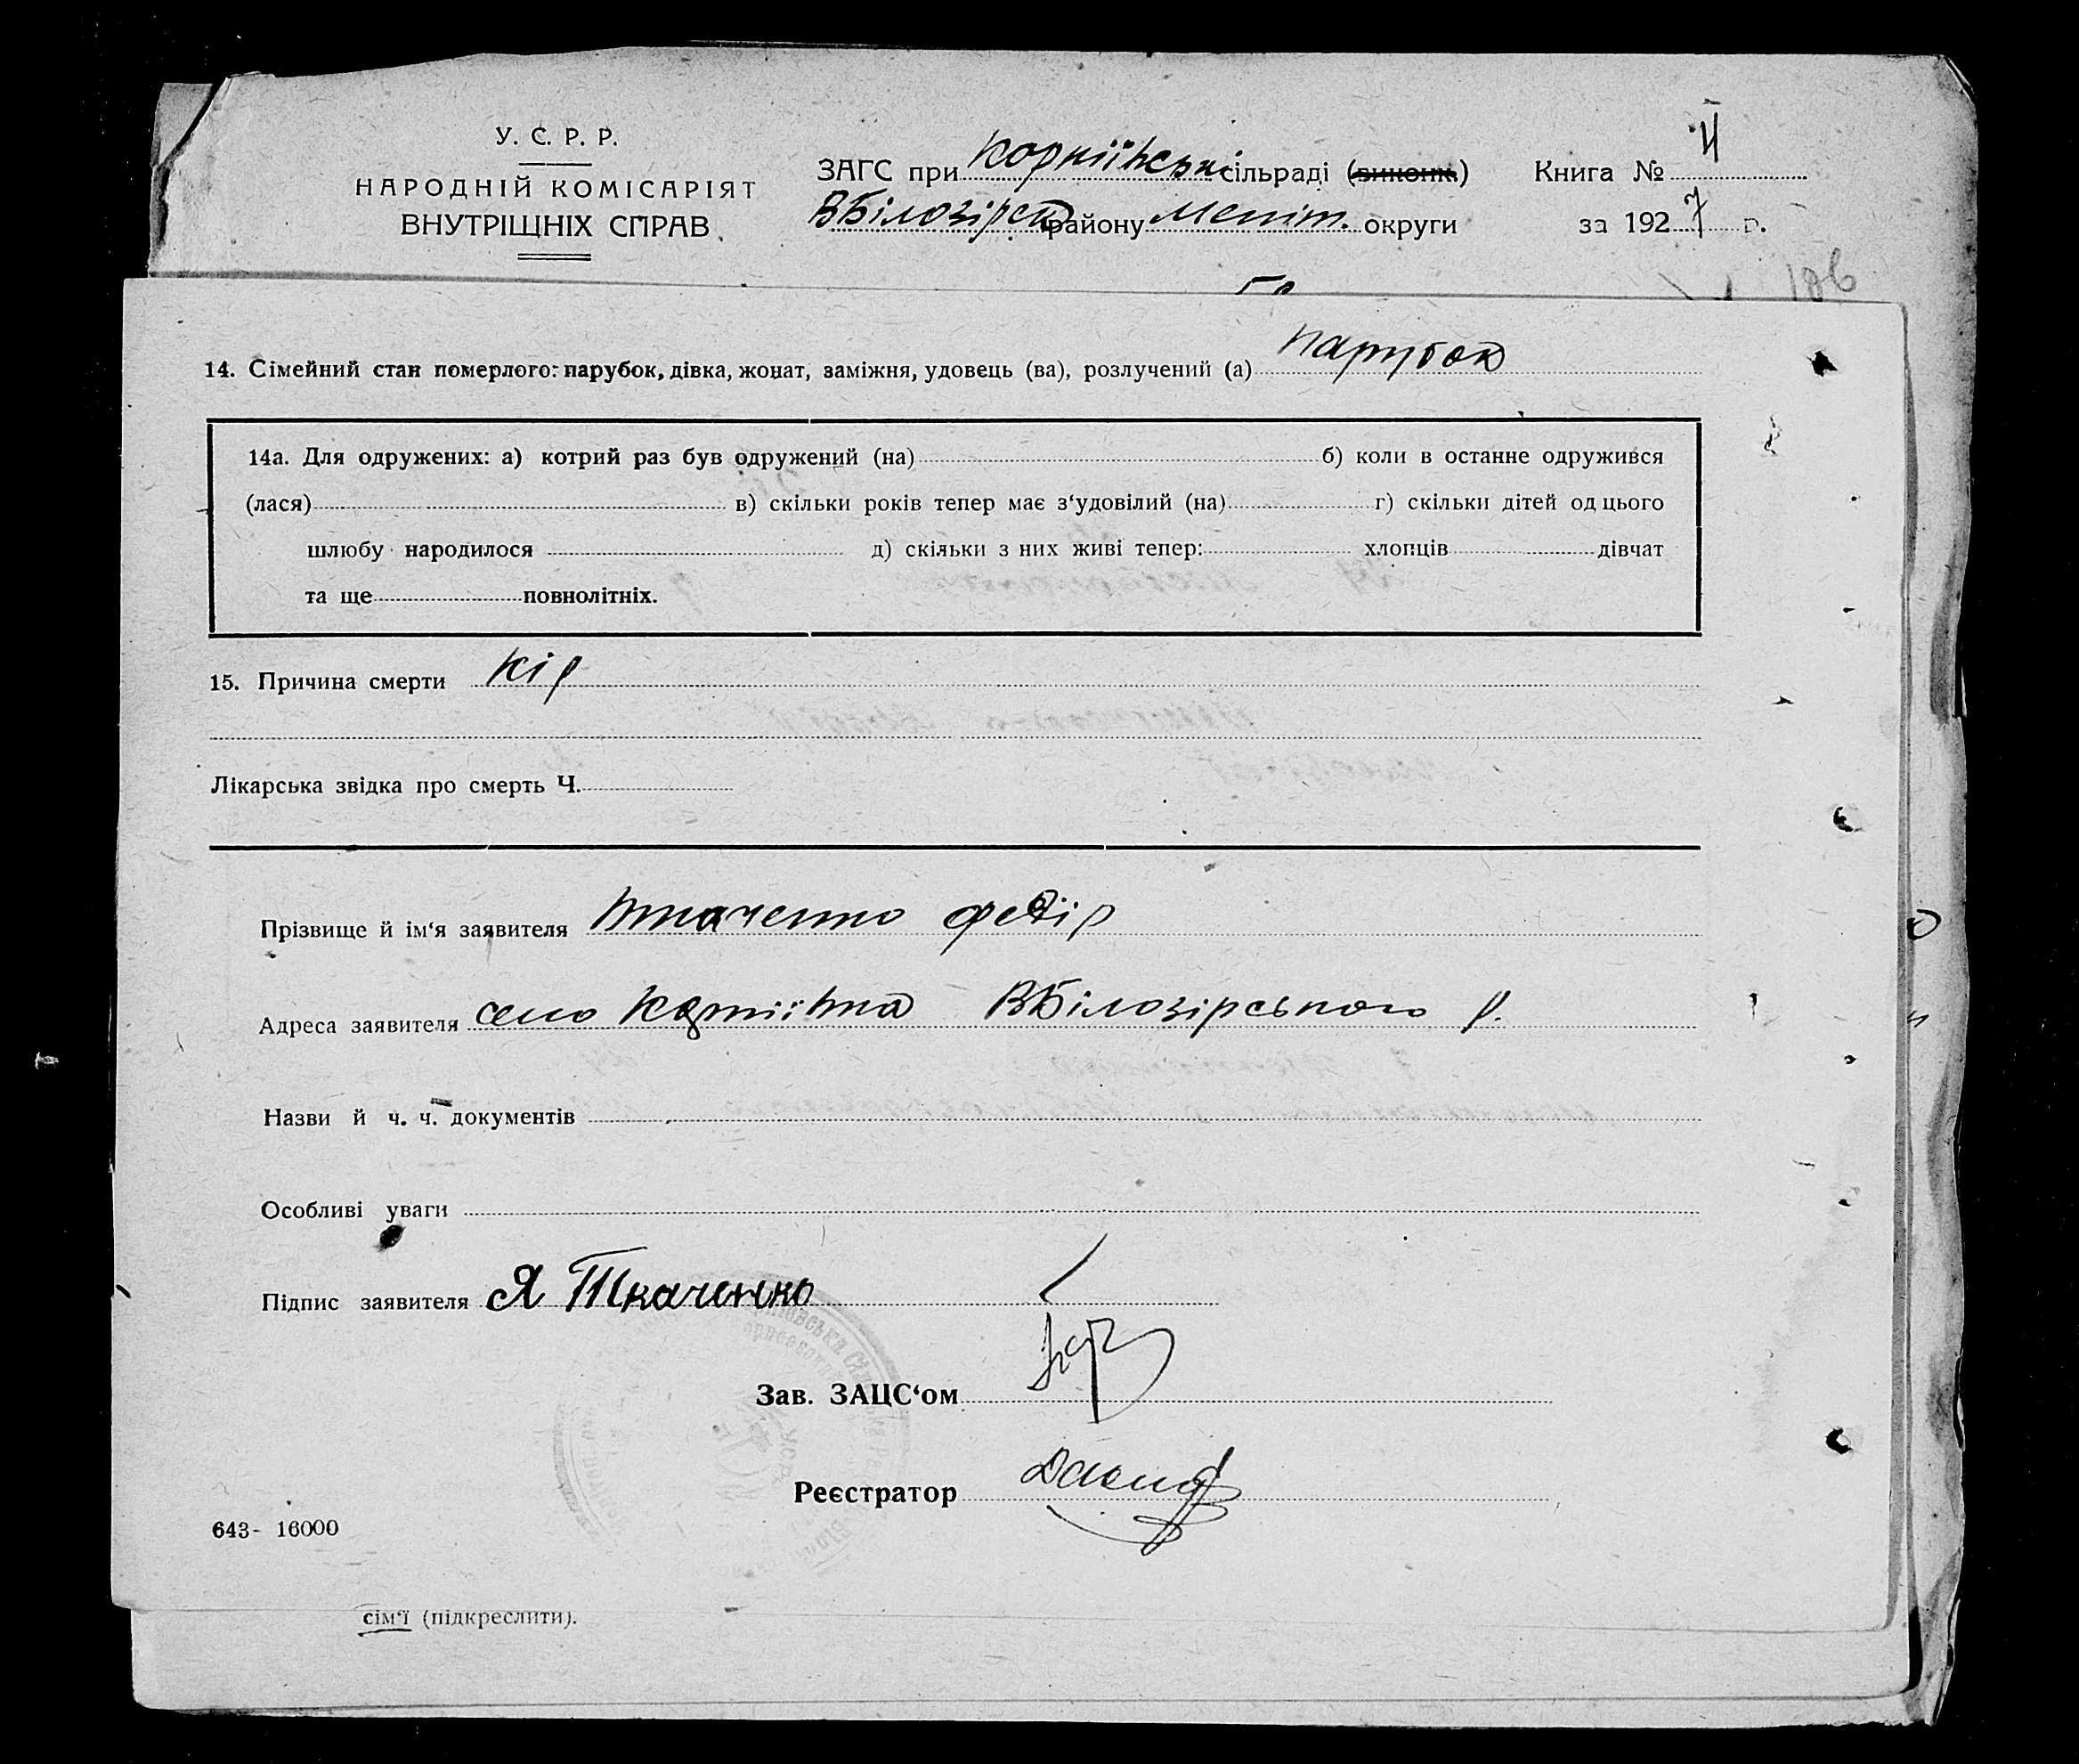 У. С. Р. Р.
НАРОДНІЙ КОМІСАРІЯТ
ВНУТРІШНІХ СПРАВ.
ЗАГС при Корніївські сільраді (виконк.) Книга № II
ВБілозірск району Меліт. округи за 1927 р.
106
14. Сімейний стан померлого: парубок, дівка, жонат, заміжня, удовець (ва), розлучений (а) парубок
14а. Для одружених: а) котрий раз був одружений (на) б) коли в останне одружився
(лася) в) скільки років тепер має з‘удовілий (на) г) скільки дітей од цього
шлюбу народилося д) скільки з них живі тепер: хлопців дівчат
та ще повнолітніх.
15. Причина смерти кір
Лікарська звідка про смерть Ч.
Прізвище й ім‘я заявителя Ткаченко Федір
Адреса заявителя село Корніївка ВБілозірського р.
Назви й ч. ч. документів
Особливі уваги
Підпис заявителя Я Ткаченко
Зав. ЗАЦС‘ом
Реєстратор
643- 16000
сім‘ї (підкреслити).